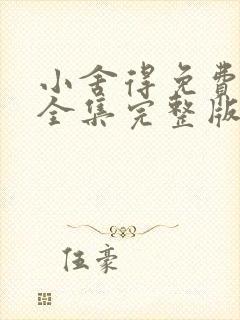 小舍得免费
全集完整版
伍豪